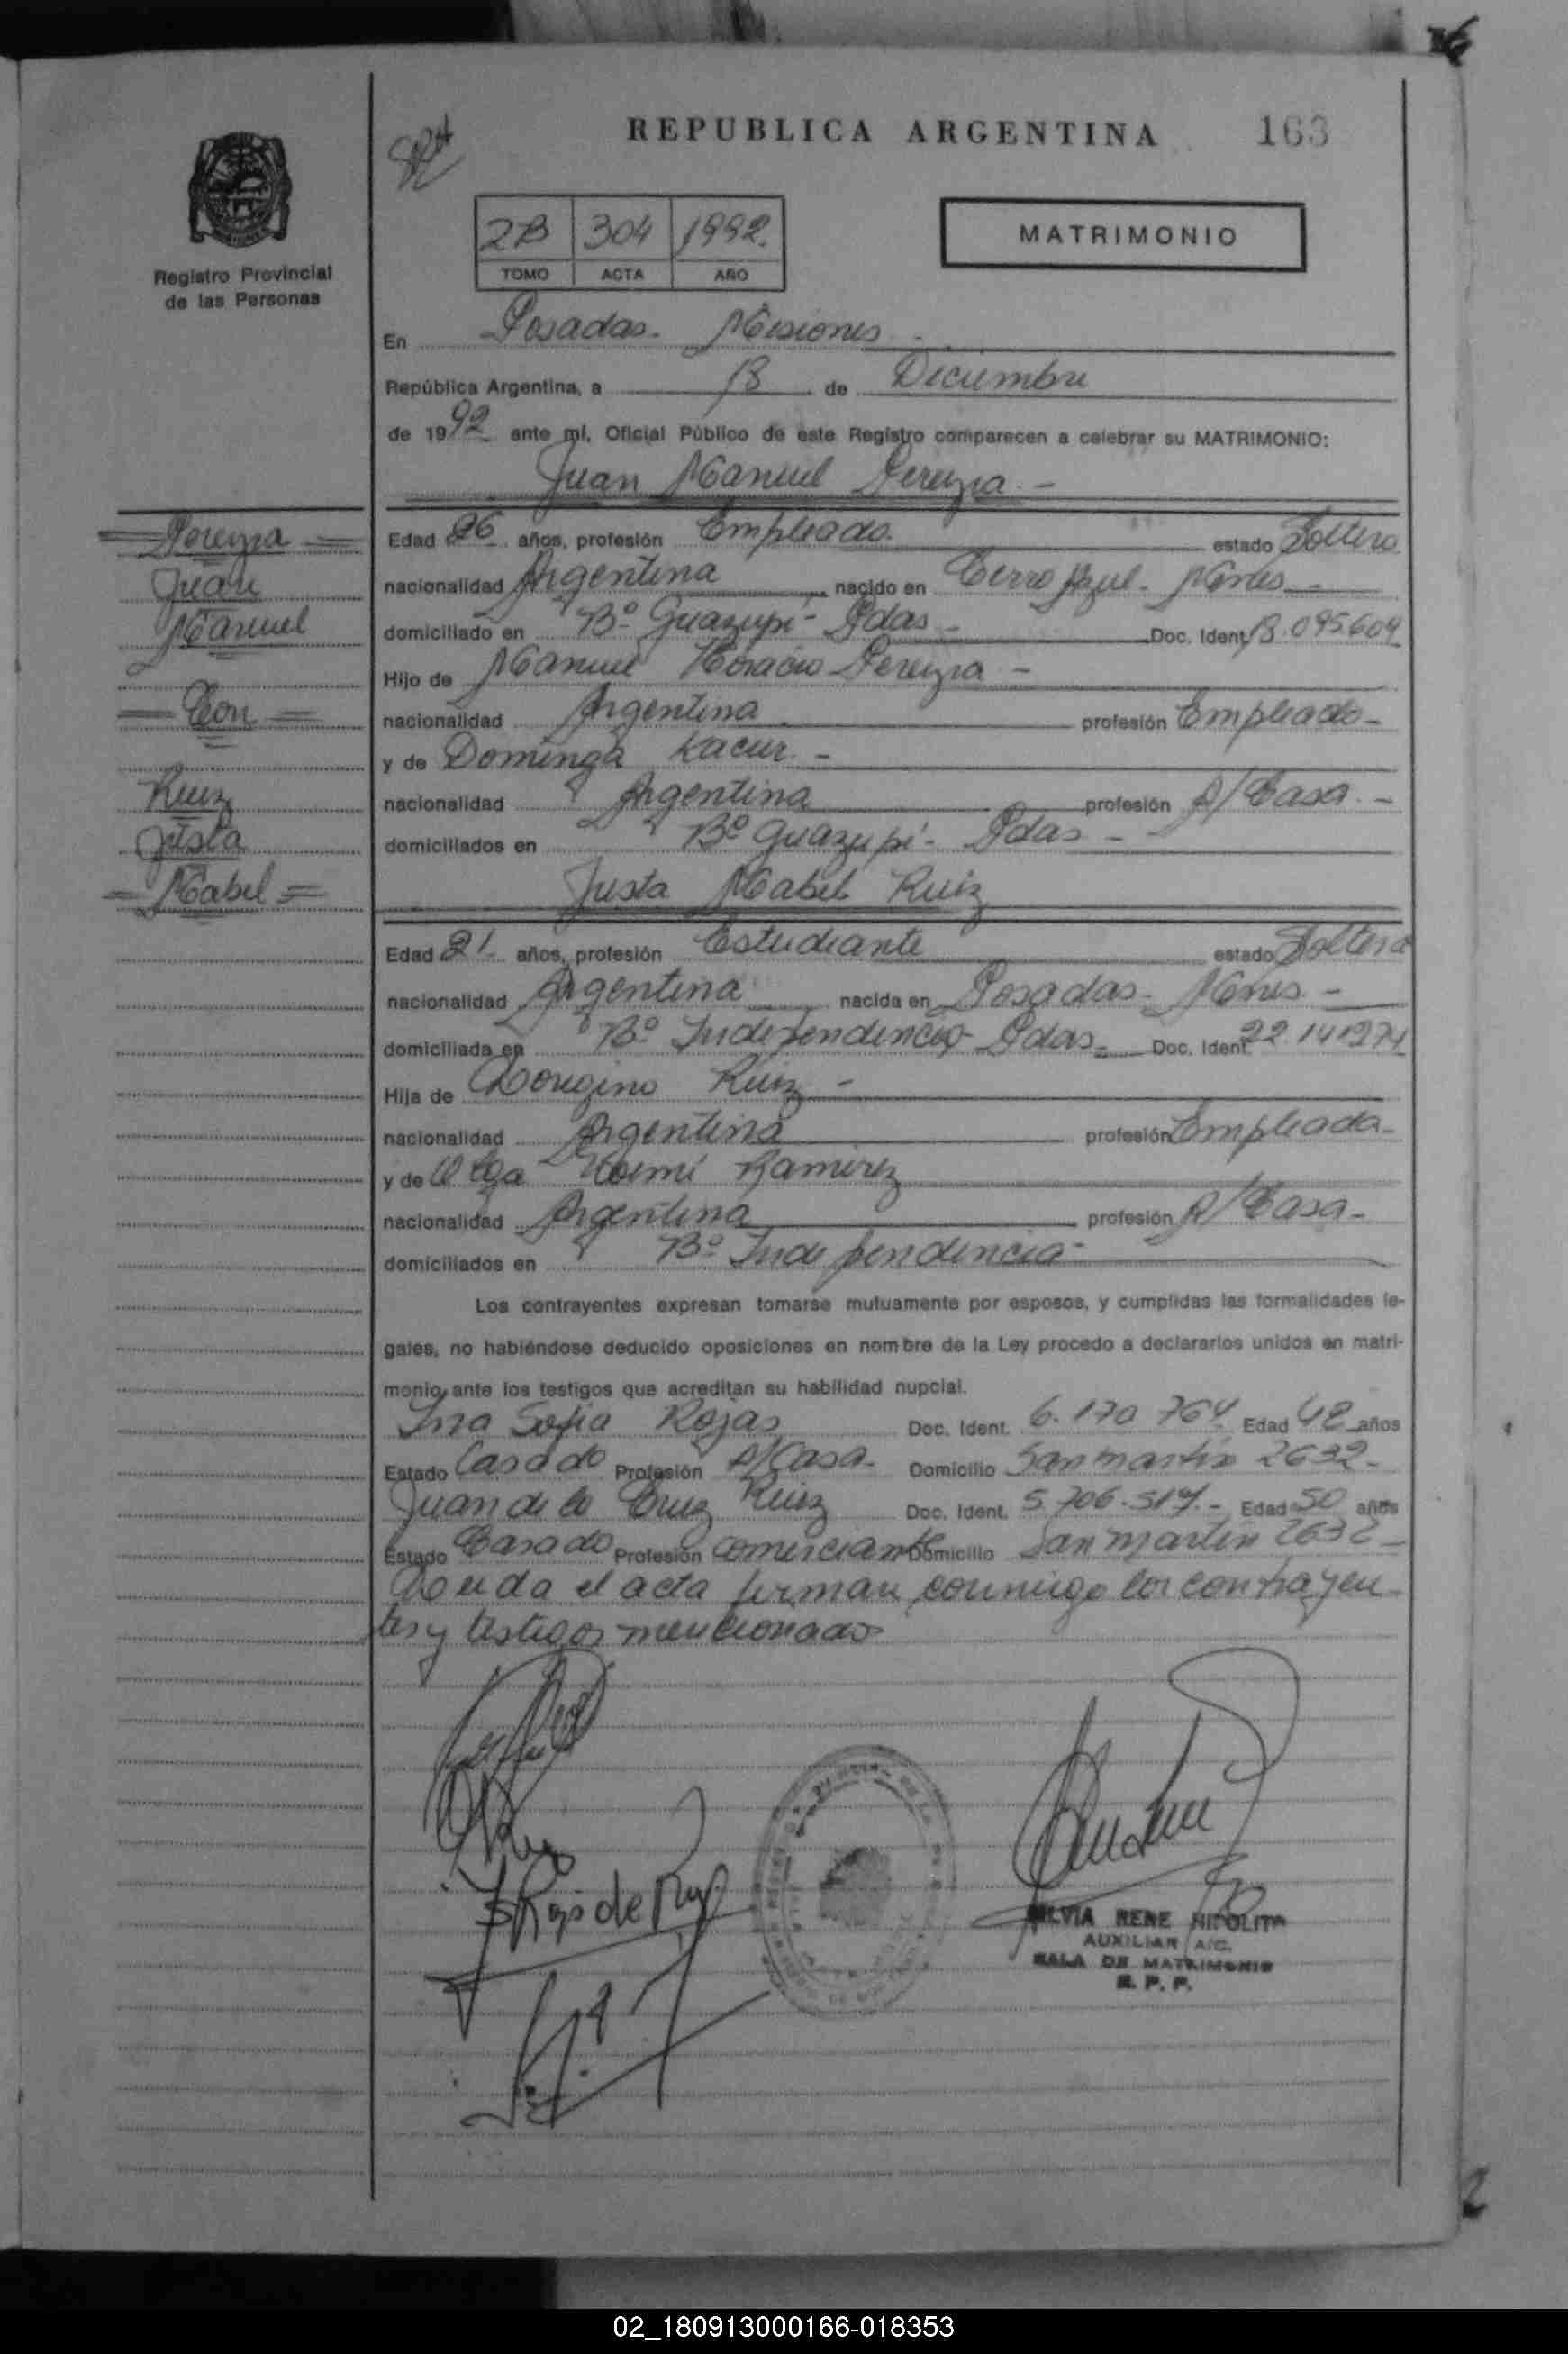 REPUBLICA ARGENTINA 163
Registro Provincial
de las Personas
2B 304 1992.
TOMO ACTA AÑO
MATRIMONIO
En Posadas - Misiones
República Argentina, a 18 de Diciembre
de 1992 ante mi, Oficial Público de este Registro comparecen a celebrar su MATRIMONIO:
Juan Manuel Pereyra -
Pereyra
Juan
Manuel
Con
Ruiz
Justa
Mabel
Edad 26 años, profesión Empleado. estado Soltero
nacionalidad Argentina nacido en Cerro Azul - Mnes -
domiciliado en Bº Guazupi - Pdas - Doc. Ident. 18.095.604
Hijo de Manuel Horacio Pereyra -
nacionalidad Argentina profesión Empleado -
y de Dominga Kacur. -
nacionalidad Argentina profesión q/ Casa. -
domiciliados en Bº Guazupi - Pdas -
Justa Mabel Ruiz
Edad 21 años, profesión Estudiante estado Soltera
nacionalidad Argentina nacida en Posadas - Mnes. -
domiciliada en Bº Independencia - Pdas - Doc. Ident. 22.141274
Hija de Ruiz -
nacionalidad Argentina profesión Empleada -
y de Olga Noemi Ramirez
nacionalidad Argentina profesión q/ Casa -
domiciliados en Bº Independencia -
Los contrayentes expresan tomarse mutuamente por esposos, y cumplidas las formalidades le-
gales, no habiéndose deducido oposiciones en nombre de la Ley procedo a declararlos unidos en matri-
monio ante los testigos que acreditan su habilidad nupcial.
Sofia Rojas Doc. Ident. 6.170 764 Edad 48 años
Estado Casado Profesión q/Casa - Domicilio San martin 2632 -
Juan de la Cruz Ruiz Doc. Ident. 5.706.517. - Edad 50 años
Estado Casado Profesión Comerciante Domicilio San martin 2632 -
Leida el acta firman conmigo los contrayen-
tes y testigos mencionados
Rojas de
SILVIA RENE HIPOLITA
AUXILIAR A/C.
SALA DE MATRIMONIO
R. P. P.
02_180913000166-018353